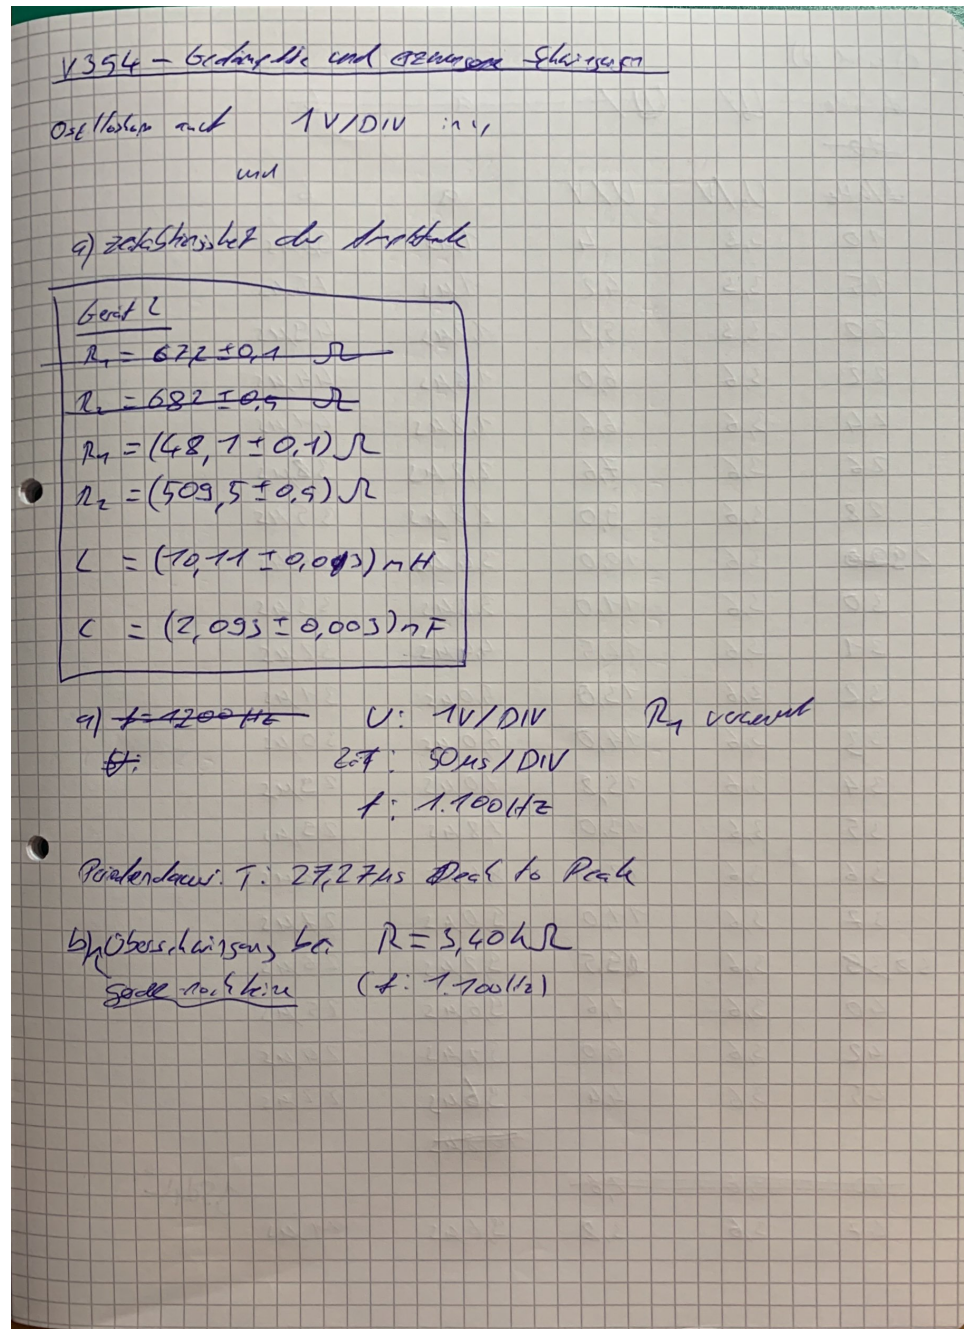 V354 – Gedämpfte und erzwungene Schwingungen
Oszilloskop auf 1V/DIV in y
und
a) Zeitabhängigkeit der Amplitude
Gerät 2
R₁ = 67,2 ± 0,1 Ω
R₂ = 682 ± 0,5 Ω
R₁ = (48,1 ± 0,1) Ω
R₂ = (509,5 ± 0,5) Ω
L = (10,11 ± 0,03) mH
C = (2,093 ± 0,003) nF
a) f=1200Hz U: 1V/DIV R₁ verwendet
Zeit: 50µs/DIV
f: 1.100Hz
Periodendauer: T: 27,27µs Peak to Peak
b) Überschwingung bei R = 3,40kΩ
gerade noch keine (f: 1.100Hz)